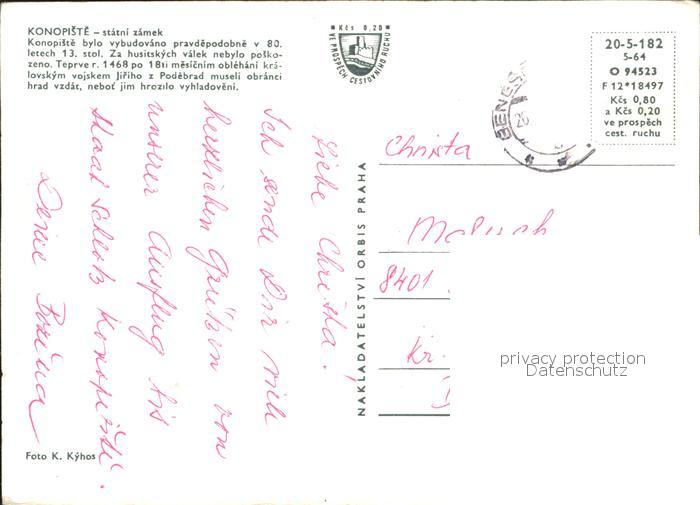 KONOPIŠTĚ – státní zámek
Konopiště bylo vybudováno pravděpodobně v 80.
letech 13. stol. Za husitských válek nebylo poško-
zeno. Teprve r. 1468 po 18ti měsíčním obléhání krá-
lovským vojskem Jiřího z Poděbrad museli obránci
hrad vzdát, neboť jim hrozilo vyhladovění.
Kčs 0,20
VE PROSPĚCH CESTOVNÍHO RUCHU
20-5-182
5-64
O 94523
F 12*18497
Kčs 0,80
a Kčs 0,20
ve prospěch
cest. ruchu
BENEŠ
26
Liebe Christa!
Ich sende Dir viele
herzlichen Grüßen von
unserer Ausflug bis
Staat Schloß Konopiště.
Deine Božena
NAKLADATELSTVÍ ORBIS PRAHA
Christa
8401
Kr.
privacy protection
Datenschutz
Foto K. Kýhos